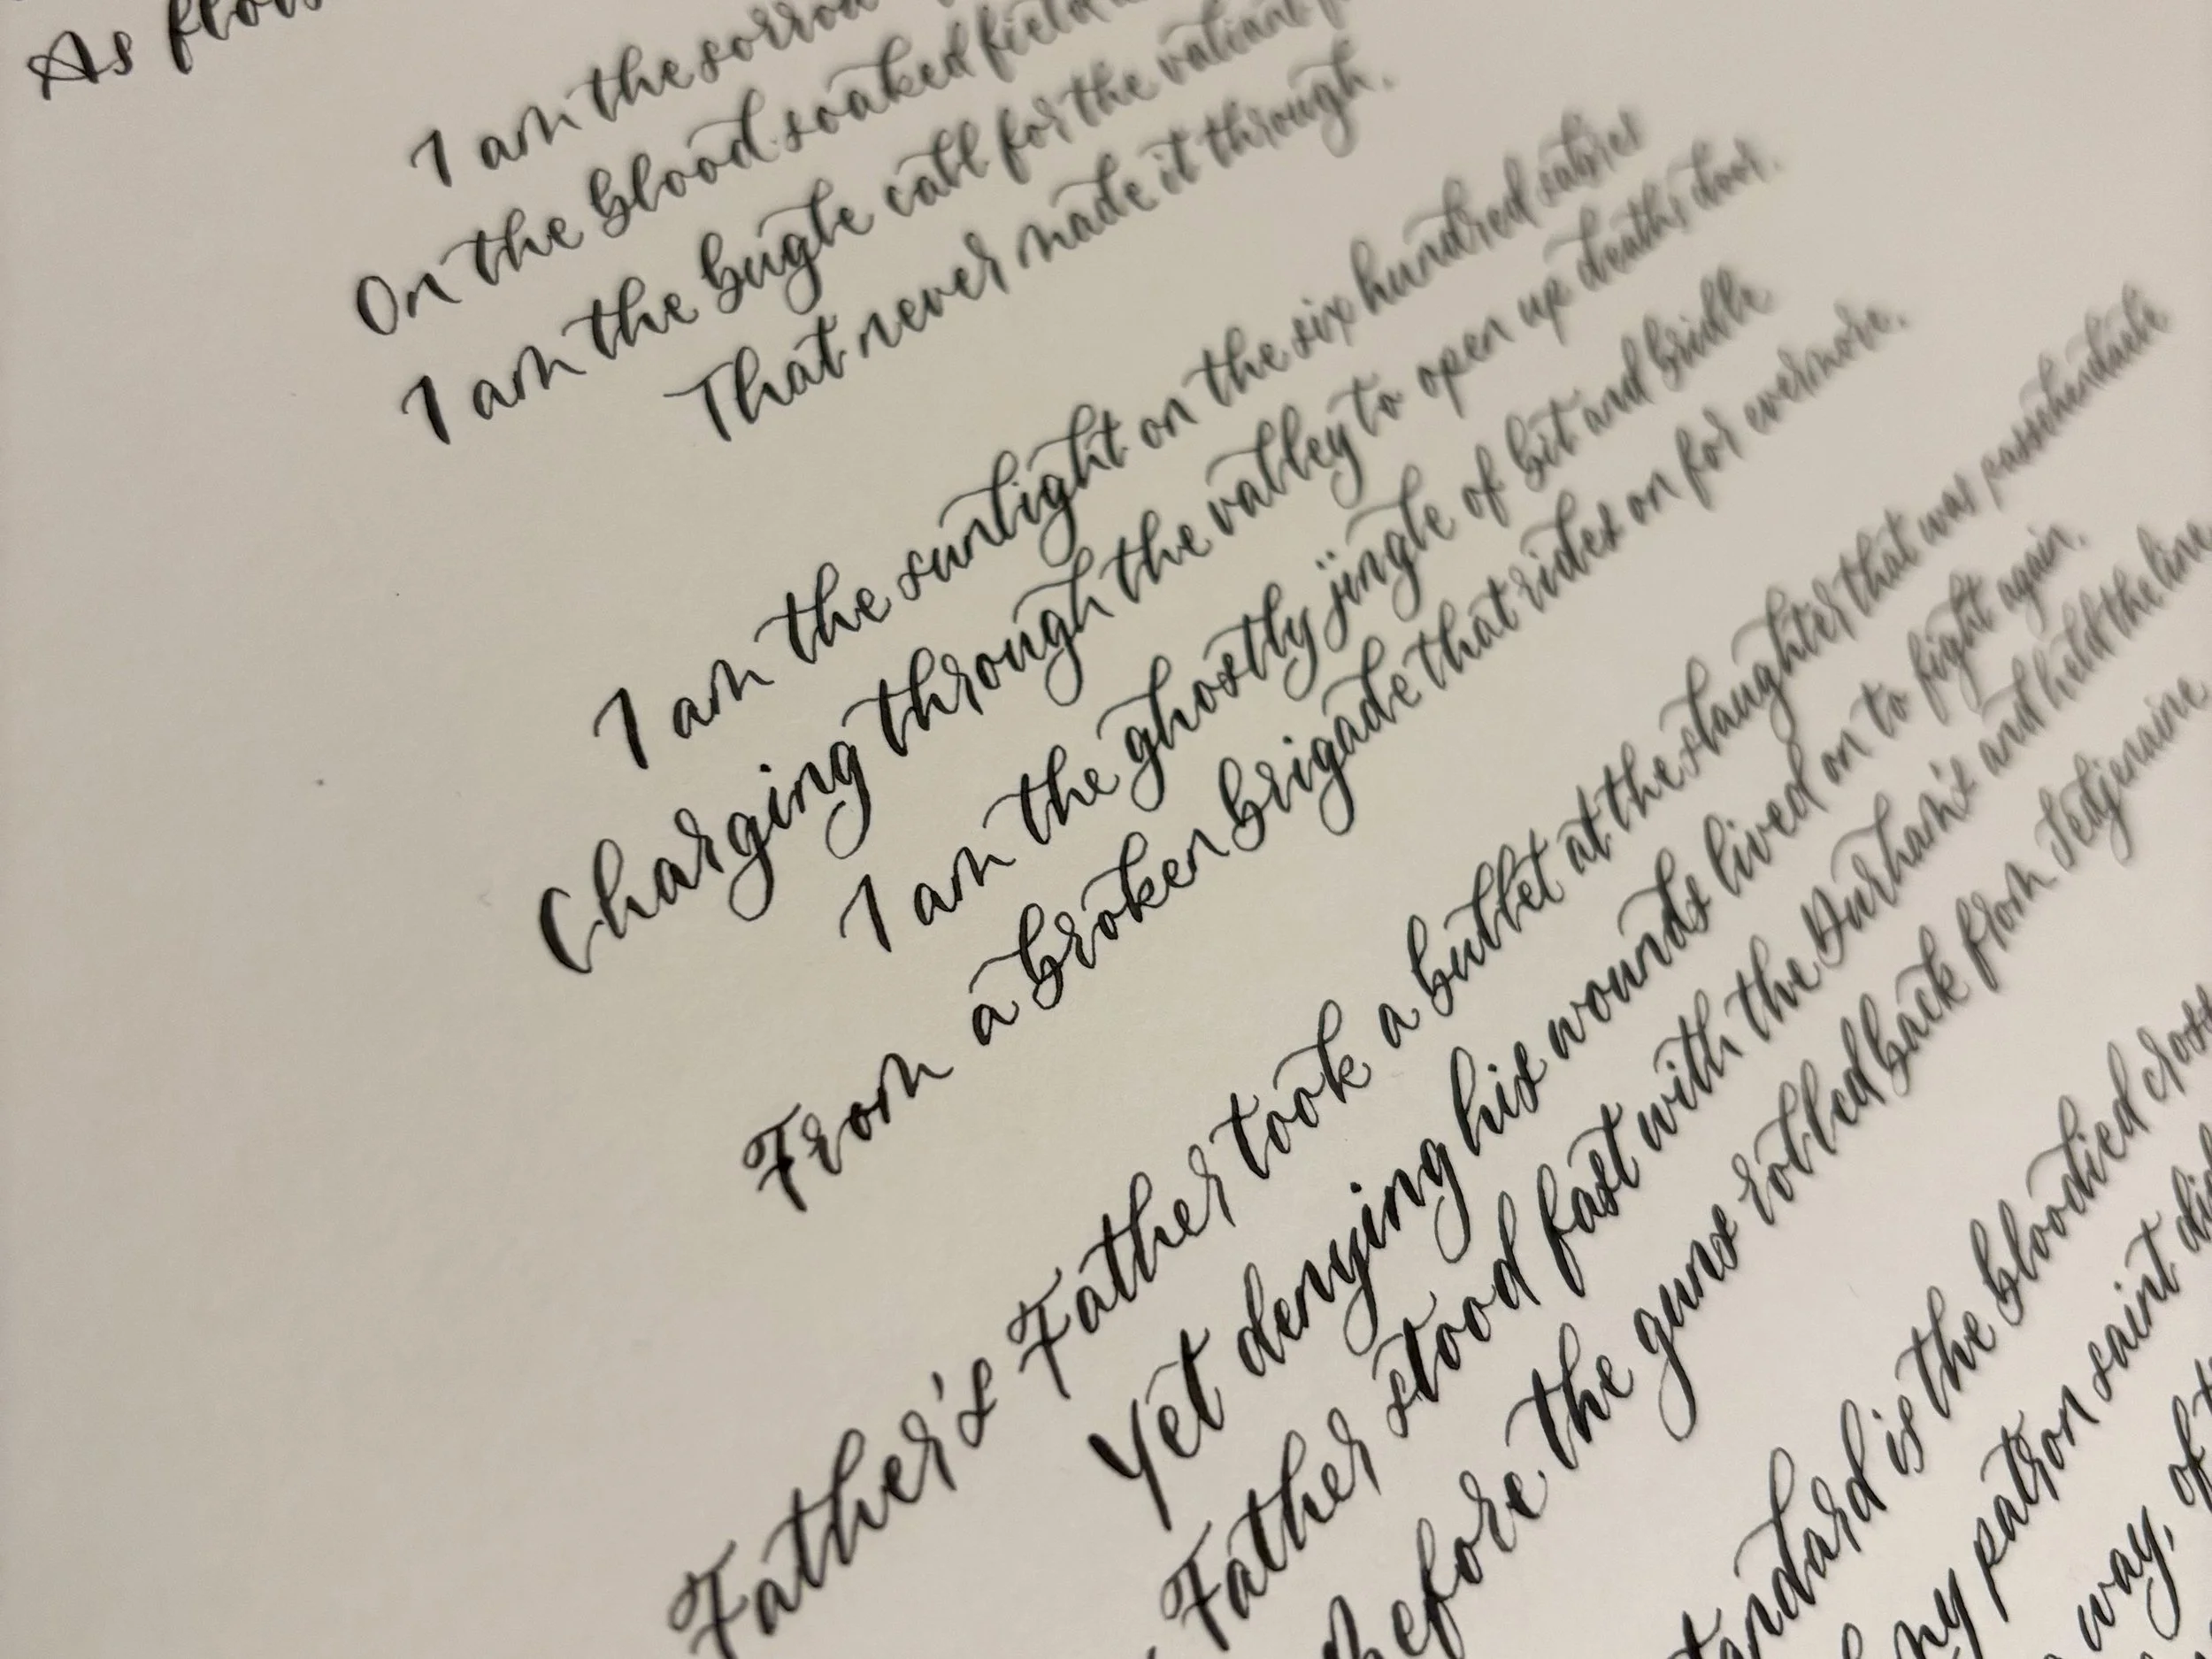 As
I am the
On the blood soaked field
I am the bugle call for the valiant
That never made it through.
I am the sunlight on the six hundred sabres
Charging through the valley to open up deaths door.
I am the ghostly jingle of bit and bridle
From a broken brigade that rides on for evermore.
Father's Father took a bullet at the slaughter that was passchendaele
Yet denying his wounds lived on to fight again.
Father stood fast with the Durham's and held the line
the guns rolled back from Sedjenaine
is the bloodied cross
my patron saint
way, of